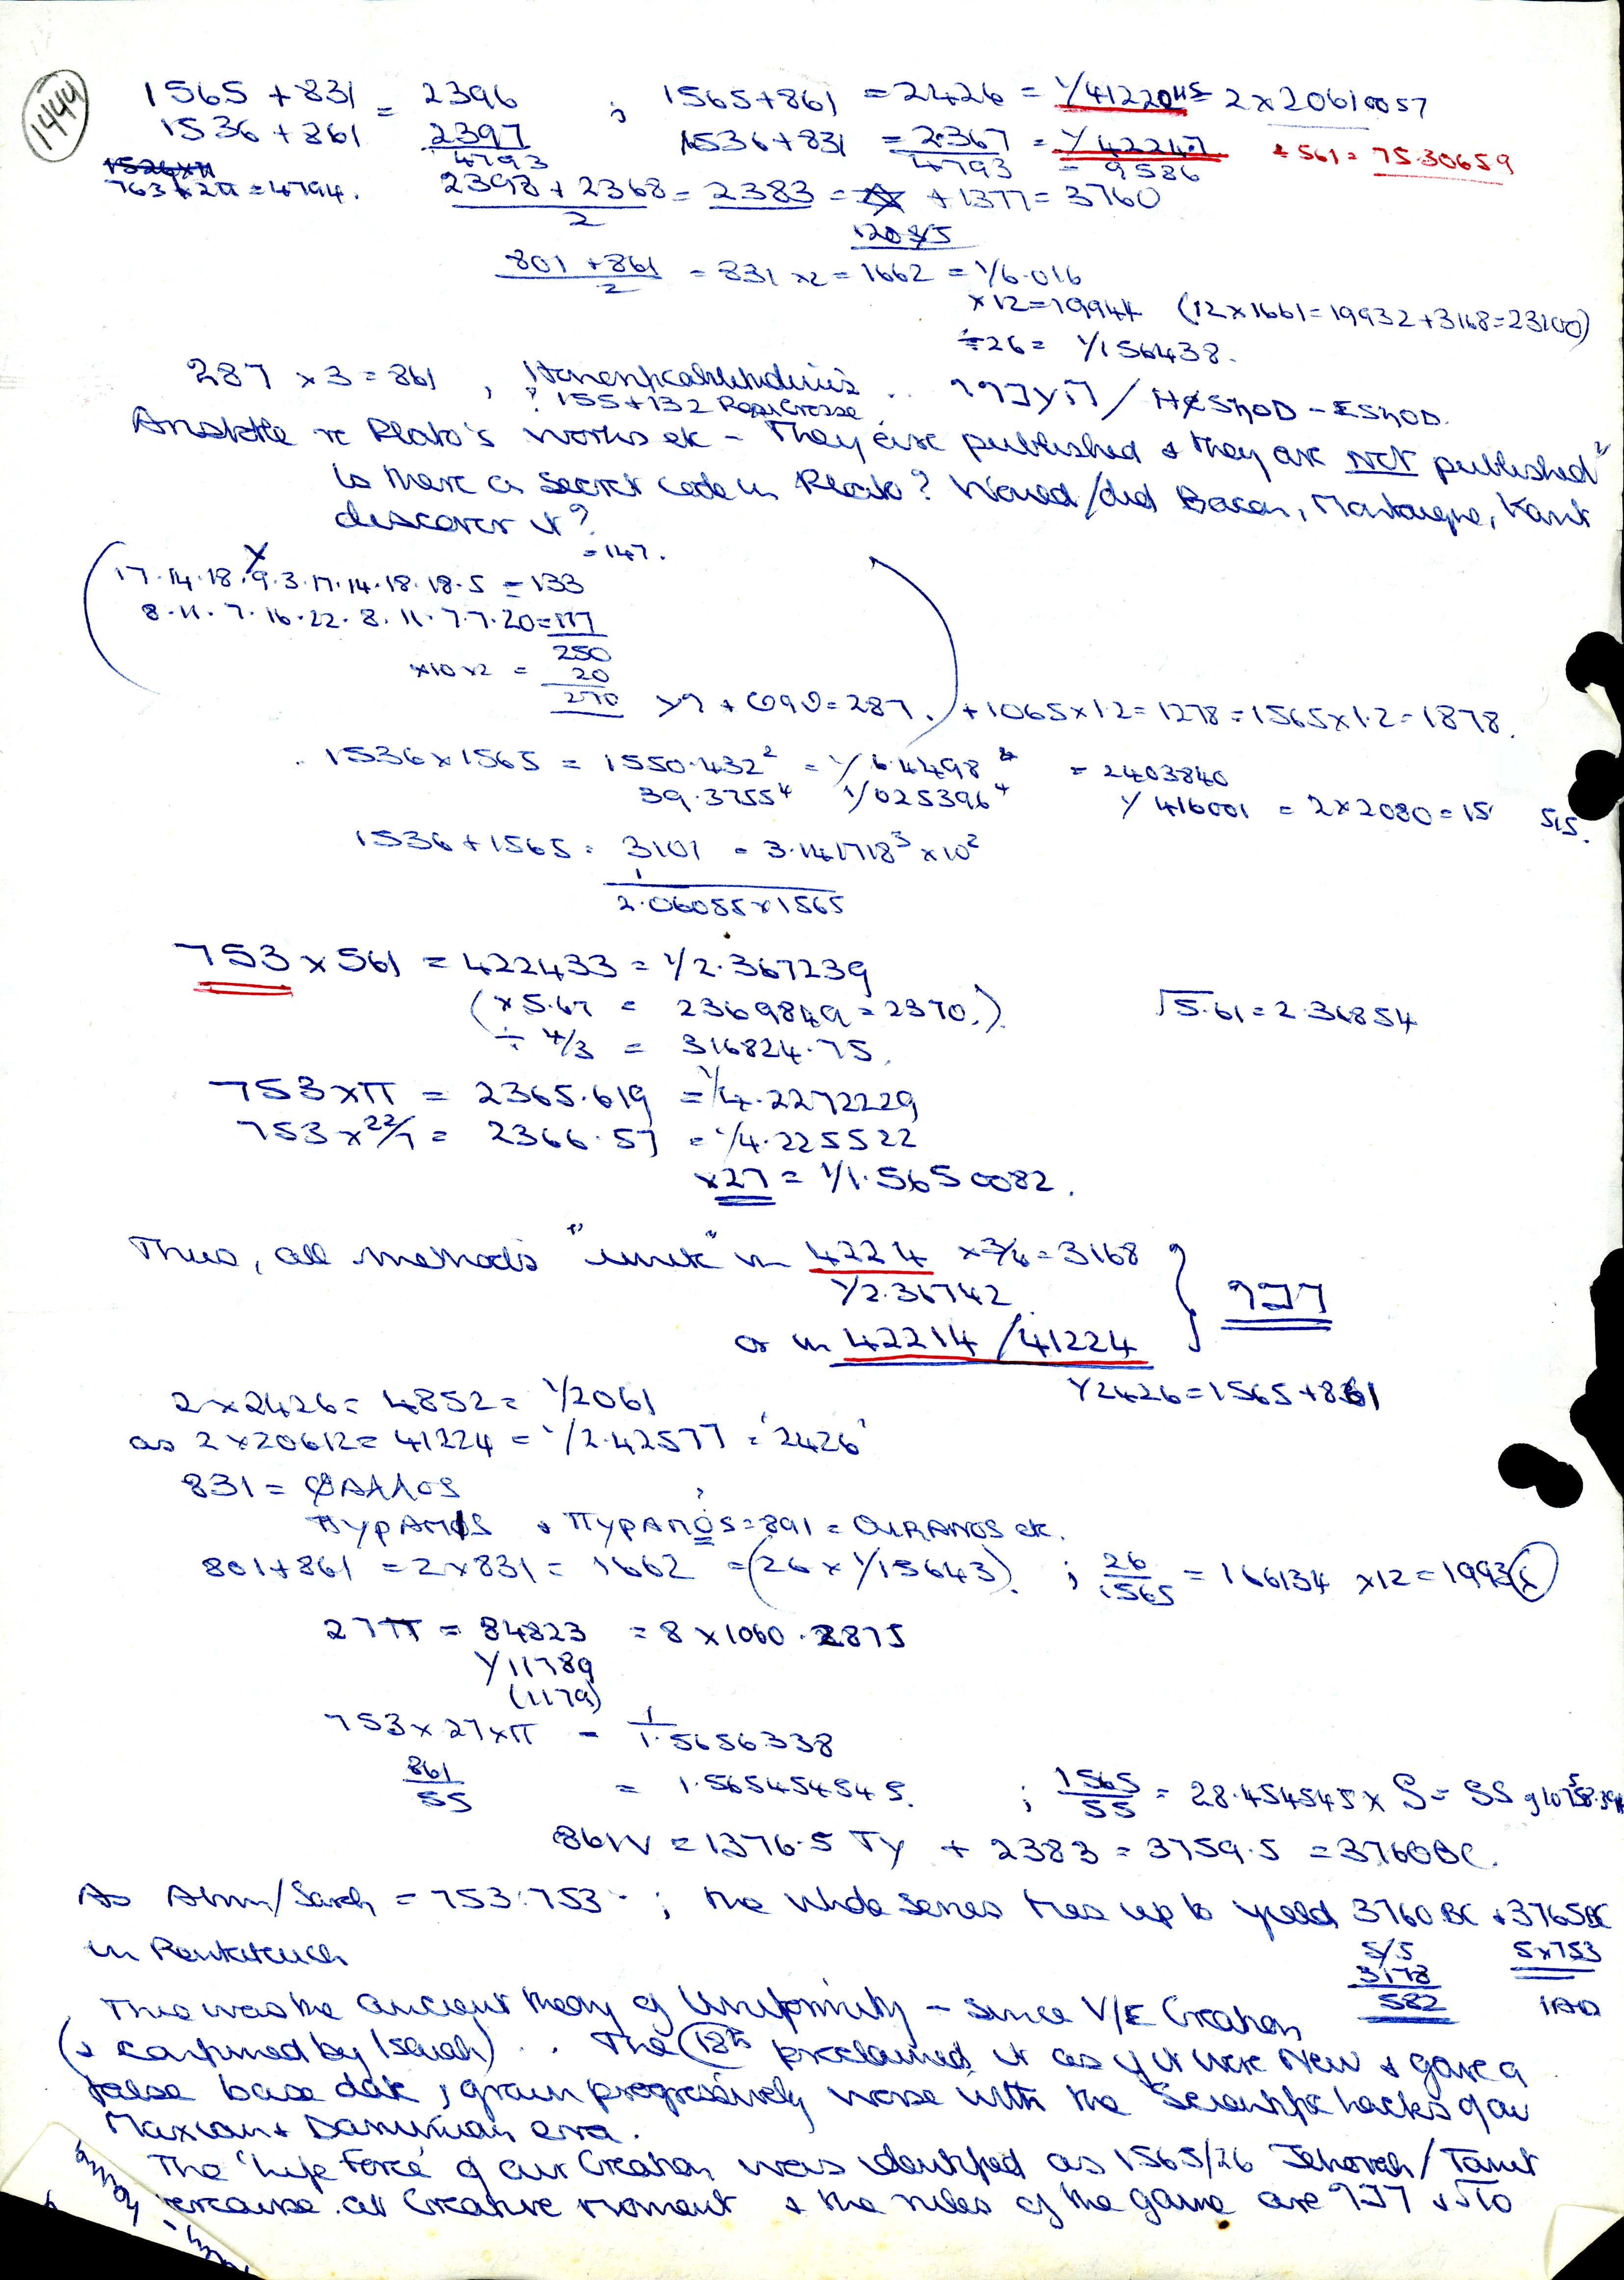 1444
1565 + 831 = 2396 ; 1565+861 = 2426 = 1/4122045 = 2 x 20610057
1536 + 861 2397 1536+831 = 2367 = 1/42247 ÷ 561 = 75.30659
4793 4793 = 9586
763 x 2π = 4794. 2398 + 2368 = 2383 = + 1377 = 3760
2
801 + 861 = 831 x2 = 1662 = 1/6.016
2
x 12 = 19944 (12x1661 = 19932 + 3168 = 23100)
÷ 26 = 1/156438.
287 x 3 = 861 ,
? 155+132
Aristotle re Plato's works etc - They are published & they are NOT published"
Is there a secret code in Plato? Would/did Bacon, Montaigne, Kant
discover it?
= 147.
17.14.18.9.3.17.14.18.18.5 = 133
8.11.7.16.22.8.11.7.7.20 = 117
250
x10 x2 = 20
270 = 287. + 1065 x 1.2 = 1278 = 1565 x 1.2 = 1878.
1536 x 1565 = 1550.432² = 1/6.4498 = 2403840
39.3755⁴ 1/025396⁴ 1/416001 = 2 x 2080 = 15 515.
1536 + 1565 = 3101 = 3.141718³ x 10²
1
2.06055 x 1565
753 x 561 = 422433 = 1/2.367239
(x 5.61 = 2369849 = 2370.) √5.61 = 2.36854
÷ 4/3 = 316824.75.
753 x π = 2365.619 = 1/4.2272229
753 x 22/7 = 2366.57 = 1/4.225522
x27 = 1/1.5650082.
Thus, all methods "unite" in 4224 x 3/4 = 3168
1/2.36742 לפי
or in 42214 / 41224
1/2426 = 1565 + 861
2 x 2426 = 4852 = 1/2061
as 2 x 20612 = 41224 = 1/2.42577 = '2426'
831 = ΦΑΛΛΟS
ΠΥΡΑΜΙS & ΠΥΡΑΜΟS = 891 = OURANOS etc.
801 + 861 = 2 x 831 = 1662 = (26 x 1/15643). ; 26/1565 = 166134 x 12 = 1993
27π = 84823 = 8 x 1060.2875
1/11789
(1179)
753 x 27 x π = 1/1.5656338
861/55 = 1.565454545. ; 1565/55 = 28.454545 x
861V = 1376.5 TY + 2383 = 3759.5 = 3760BC.
As Abm/Sarah = 753:753 ; the whole series ties up to yield 3760 BC & 3765BC
in Pentateuch 5/5 5x753
3178
582 IAO
This was the ancient theory of Uniformity - since V/E Creation
(& confirmed by Isaiah) .. The 18th proclaimed it as if it were New & gave a
false base date, grown progressively worse with the 'Scientific hacks of our
Marxian & Darwinian era.
The 'Life Force' of our Creation was identified as 1565/26 Jehovah/Tanit
at Creative moment & the rules of the game are לפי & √10